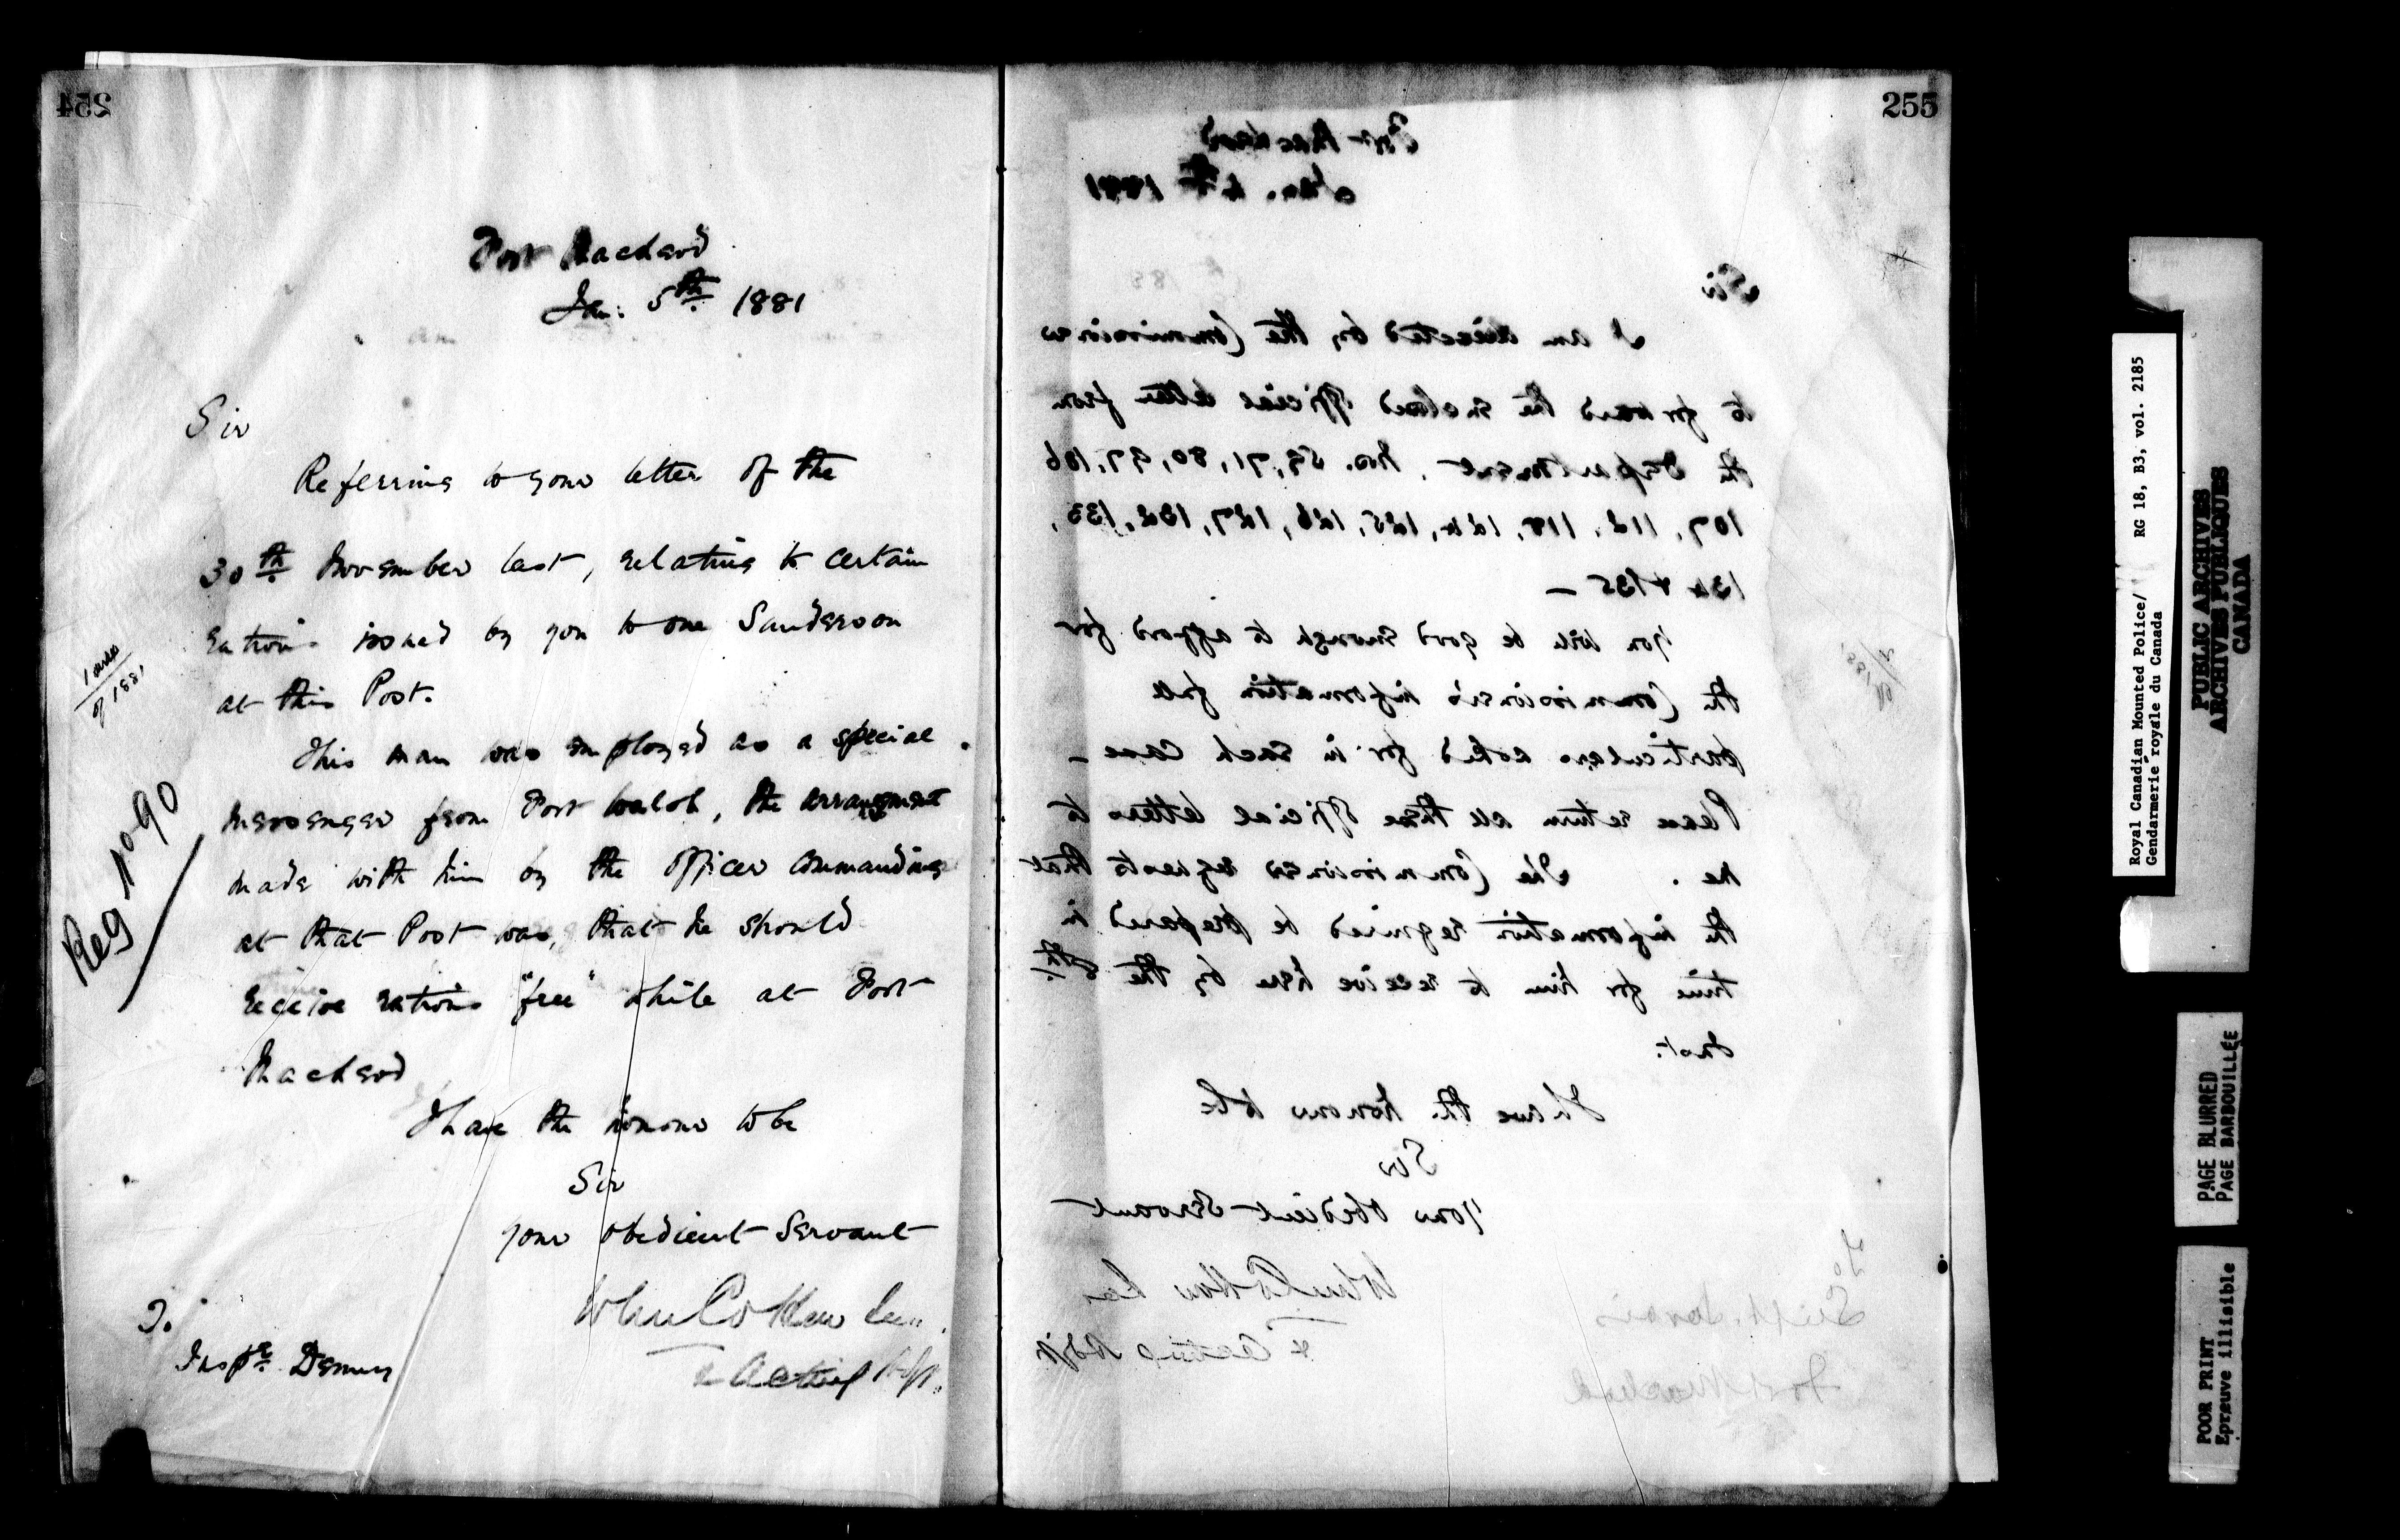 254
Fort Macleod
Jan: 5th 1881
Sir
Referring to your letter of the
30th November last, relating to certain
rations issued by you to one Sanderson
at this Post.
This man was employed as a special
messenger from Fort Walsh, the arrangement
made with him by the officer commanding
at that Post was, that he should
receive rations "free" while at Fort
Macleod
I have the honour to be
Sir
your obedient Servant
Acting Adjt.
To
Inspr. Denny
of 1881
Reg No 90
255
Fort Macleod
Jan. 4th 1881
Sir
I am directed by the Commissioner
to forward the enclosed official letters from
the Department, Nos. 59, 71, 80, 97, 106
107, 112, 118, 124, 125, 126, 127, 132, 133,
134 & 135 —
You will be good enough to afford for
the Commissioner's information full
particulars asked for in each case —
Please return all these official letters to
me. The Commissioner requests that
the information required be prepared in
time for him to receive here by the 8th
Inst.
I have the honour to be
Sir
Your Obedient Servant
Acting Adjt
To
Supt. Jarvis
Fort Macleod
Royal Canadian Mounted Police/ RG 18, B3, vol. 2185
Gendarmerie royale du Canada
PUBLIC ARCHIVES
ARCHIVES PUBLIQUES
CANADA
PAGE BLURRED
PAGE BARBOUILLÉE
POOR PRINT
Epreuve illisible